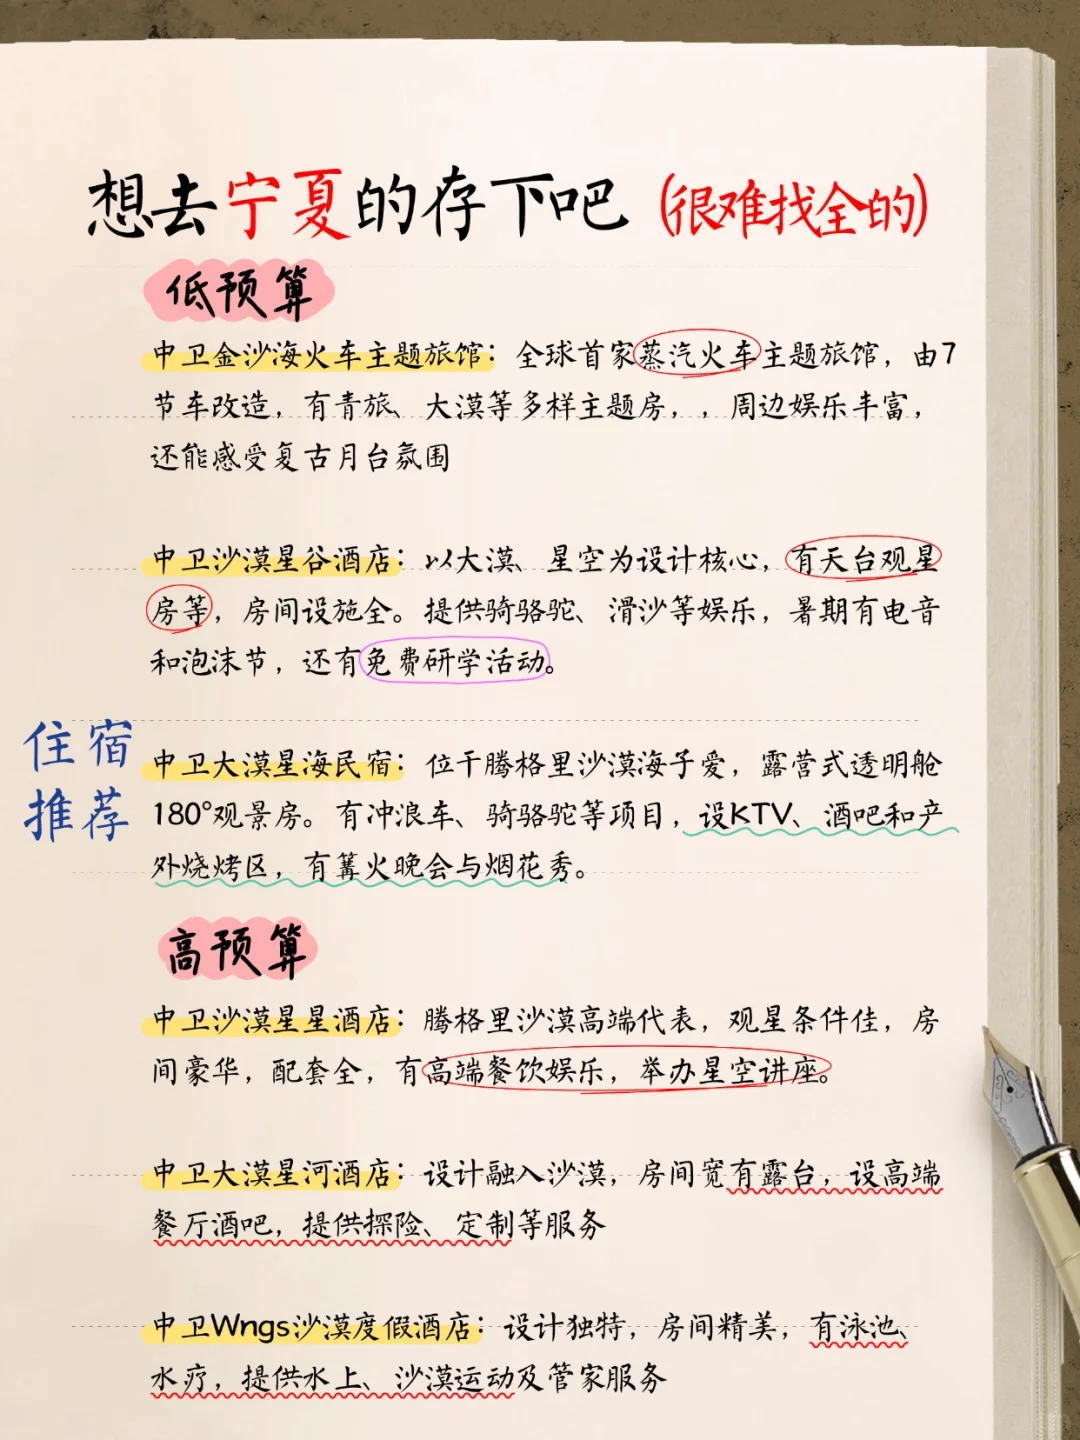 想去宁夏的存下吧（很难找全的）
低预算
中卫金沙海火车主题旅馆：全球首家蒸汽火车主题旅馆，由7
节车改造，有青旅、大漠等多样主题房，，周边娱乐丰富，
还能感受复古月台氛围
中卫沙漠星谷酒店：以大漠、星空为设计核心，有天台观星
房等，房间设施全。提供骑骆驼、滑沙等娱乐，暑期有电音
和泡沫节，还有免费研学活动。
住宿
推荐
中卫大漠星海民宿：位于腾格里沙漠海子爱，露营式透明舱
180°观景房。有冲浪车、骑骆驼等项目，设KTV、酒吧和产
外烧烤区，有篝火晚会与烟花秀。
高预算
中卫沙漠星星酒店：腾格里沙漠高端代表，观星条件佳，房
间豪华，配套全，有高端餐饮娱乐，举办星空讲座。
中卫大漠星河酒店：设计融入沙漠，房间宽有露台，设高端
餐厅酒吧，提供探险、定制等服务
中卫Wngs沙漠度假酒店：设计独特，房间精美，有泳池、
水疗，提供水上、沙漠运动及管家服务